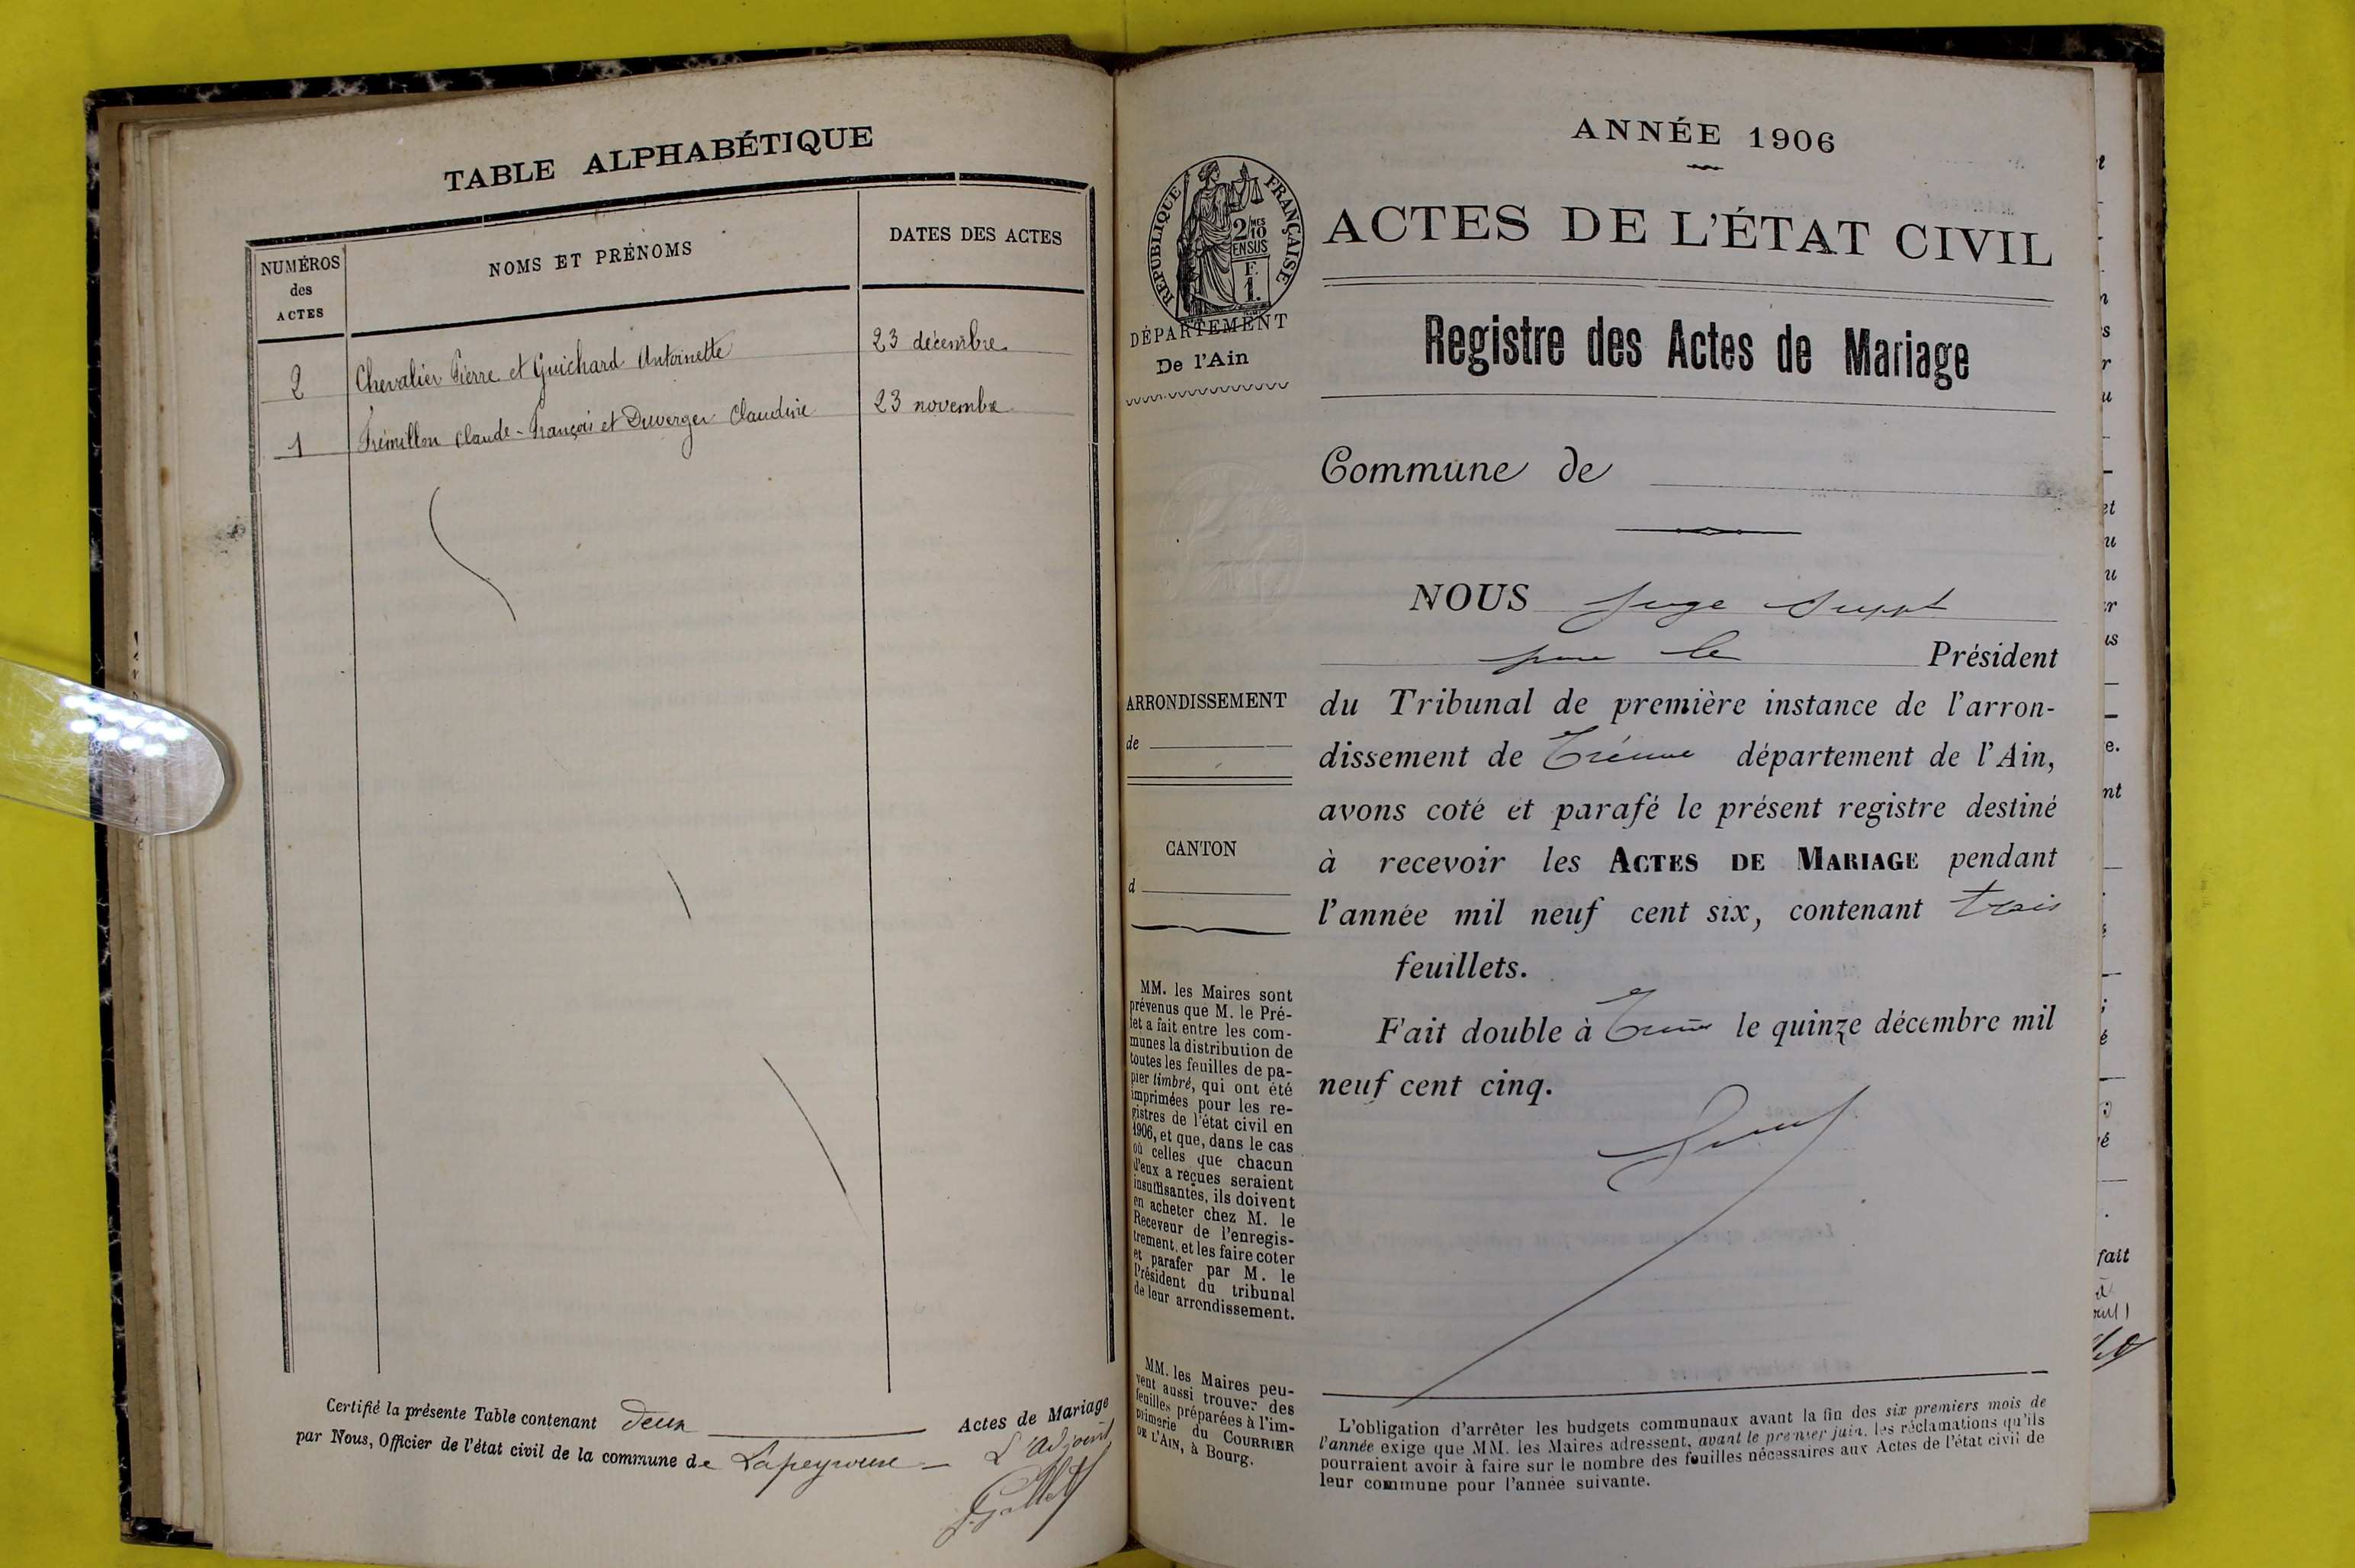 TABLE ALPHABÉTIQUE
NUMÉROS
des
ACTES
NOMS ET PRÉNOMS
DATES DES ACTES
2 Chevalier Pierre et Guichard Antoinette 23 décembre
1 Frémillon Claude-François et Duverger Claudine 23 novembre
Certifié la présente Table contenant deux Actes de Mariage
par Nous, Officier de l'état civil de la commune de Lapeyrouse
L'adjoint
ANNÉE 1906
RÉPUBLIQUE FRANÇAISE
2/10 MES
EN SUS
F.
1.
ACTES DE L'ÉTAT CIVIL
DÉPARTEMENT
De l'Ain
Registre des Actes de Mariage
Commune de
NOUS Juge Suppt
pour le Président
ARRONDISSEMENT
de
CANTON
d
du Tribunal de première instance de l'arron-
dissement de Trévoux département de l'Ain,
avons coté et parafé le présent registre destiné
à recevoir les ACTES DE MARIAGE pendant
l'année mil neuf cent six, contenant trois
feuillets.
Fait double à Trévoux le quinze décembre mil
neuf cent cinq.
MM. les Maires sont
prévenus que M. le Pré-
fet a fait entre les com-
munes la distribution de
toutes les feuilles de pa-
pier timbré, qui ont été
imprimées pour les re-
gistres de l'état civil en
1906, et que, dans le cas
où celles que chacun
d'eux a reçues seraient
insuffisantes, ils doivent
en acheter chez M. le
Receveur de l'enregis-
trement, et les faire coter
et parafer par M. le
Président du tribunal
de leur arrondissement.
MM. les Maires peu-
vent aussi trouver des
feuilles préparées à l'im-
primerie du COURRIER
DE L'AIN, à Bourg.
L'obligation d'arrêter les budgets communaux avant la fin des six premiers mois de
l'année exige que MM. les Maires adressent, avant le premier juin, les réclamations qu'ils
pourraient avoir à faire sur le nombre des feuilles nécessaires aux Actes de l'état civil de
leur commune pour l'année suivante.
fait